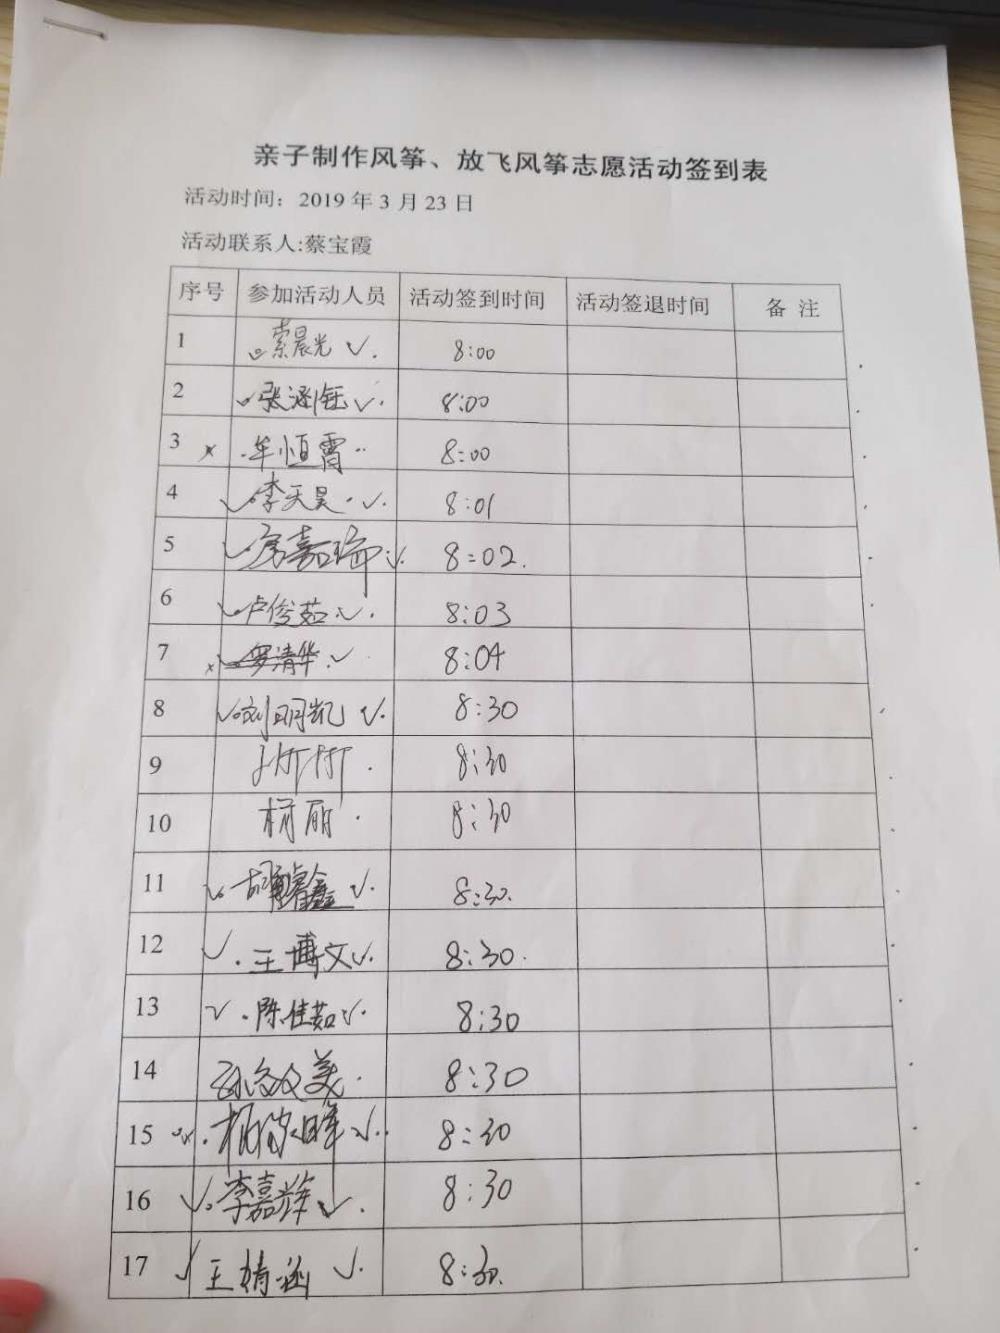 亲子制作风筝、放飞风筝志愿活动签到表
活动时间：2019 年 3 月 23 日
活动联系人:蔡宝霞
序号 参加活动人员 活动签到时间 活动签退时间 备 注
1 索晨光 8:00
2 张涵钰 8:00
3 牟恒霄 8:00
4 李天昊 8:01
5 房嘉瑞 8:02
6 卢俊茹 8:03
7 罗清华 8:04
8 刘明凯 8:30
9 8:30
10 杨丽 8:30
11 胡睿鑫 8:30
12 王博文 8:30
13 陈佳茹 8:30
14 8:30
15 8:30
16 李嘉烨 8:30
17 王婧涵 8:30